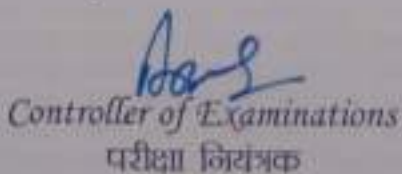 Controller of Examinations
परीक्षा नियंत्रक